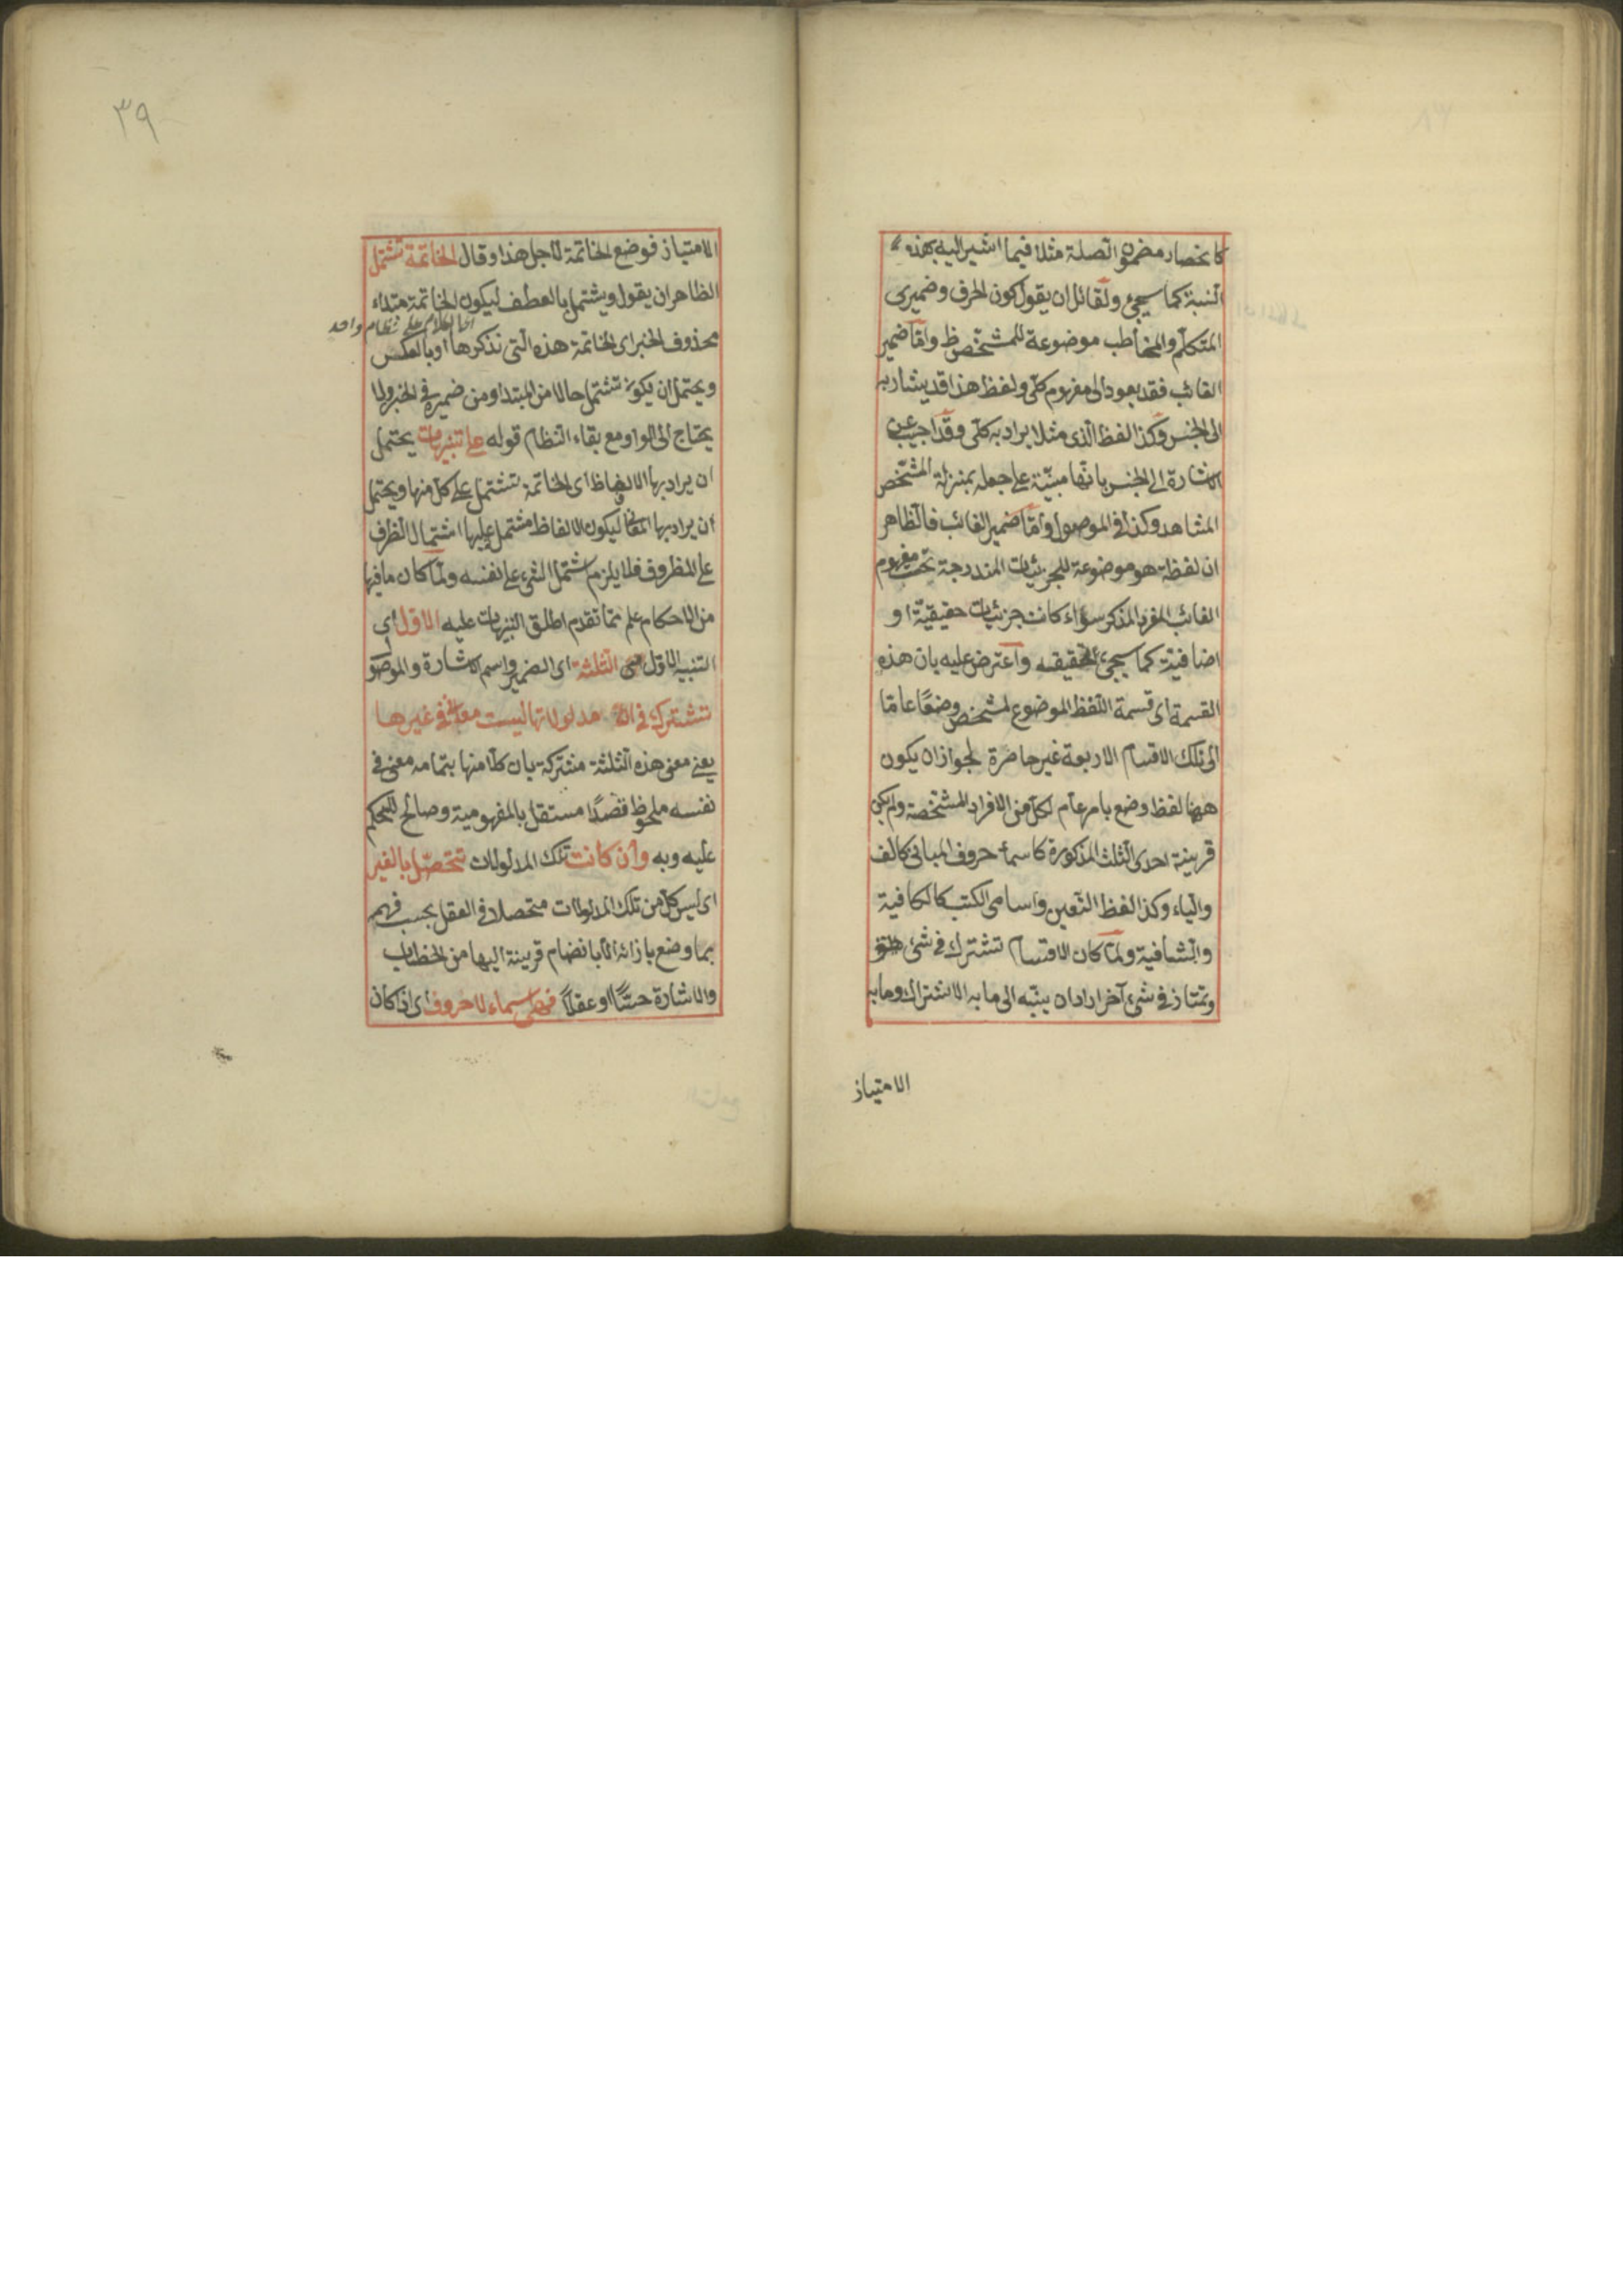 كانحصار مضمون الصلة مثلا فيما اشير اليه بهذه
النسبة كما سيجئ ولقائل ان يقول كون الحرف وضميرى
المتكلم والمخاطب موضوعة للمشخص ظ واما ضمير
الغائب فقد يعود الى مفهوم كلى ولفظ هذا قد يشار به
الى الجنس وكذا لفظ الذى مثلا يراد به كلى وقد اجيب عن
الاشارة الى الجنس بانها مبنية على جعله بمنزلة المشخص
المشاهد وكذا فى الموصول واما ضمير الغائب فالظاهر
ان لفظة هو موضوعة للجزئيات المندرجة تحت مفهوم
الغائب المفرد المذكر سواء كانت جزئيات حقيقية او
اضافية كما سيجئ تحقيقه واعترض عليه بان هذه
القسمة اى قسمة اللفظ الموضوع لمشخص وضعا عاما
الى تلك الاقسام الاربعة غير حاصرة لجواز ان يكون
ههنا لفظ وضع بامر عام لكل من الافراد المشخصة ولم يكن
قرينة احدى الثلث المذكورة كاسماء حروف المبانى كالف
والياء وكذا لفظ التعين واسامى الكتب كالكافية
والشافية ولما كان الاقسام تشترك فى شئ
وتمتاز فى شئ آخر اراد ان ينبه الى ما به الاشتراك وما به
الامتياز
٣٩
الامتياز فوضع الخاتمة لاجل هذا وقال الخاتمة تشتمل
الظاهر ان يقول ويشتمل بالعطف ليكون الخاتمة مبتداء
الكلام على نظام واحد
محذوف الخبر اى الخاتمة هذه التى نذكرها او بالعكس
ويحتمل ان يكون تشتمل حالا من المبتدا ومن ضميره فى الخبر ولا
يحتاج الى الواو مع بقاء النظام قوله على تنبيهات يحتمل
ان يراد بها الالفاظ اى الخاتمة تشتمل على كل منها ويحتمل
ان يراد بها المعانى ليكون الالفاظ مشتمل عليها اشتمال الظرف
على المظروف فلا يلزم اشتمل الشئ على نفسه ولما كان ما فيها
من الاحكام علم مما تقدم اطلق التنبيهات عليه الاول اى
التنبيه الاول الثلثة اى الضمير واسم الاشارة والموصو
تشترك فى ان مدلولاتها ليست معان فى غيرها
يعنى معنى هذه الثلثة مشتركة بان كلا منها بتمامه معنى فى
نفسه ملحوظ قصدا مستقل بالمفهومية وصالح للحكم
عليه وبه وان كانت تلك المدلولات تتحصل بالغير
اى ليس كل من تلك المدلولات متحصلا فى العقل بحسب فهم
بما وضع بازائه الا بانضام قرينة اليها من الخطاب
والاشارة حسا او عقلا فهى اسماء لا حروف اى اذا كان